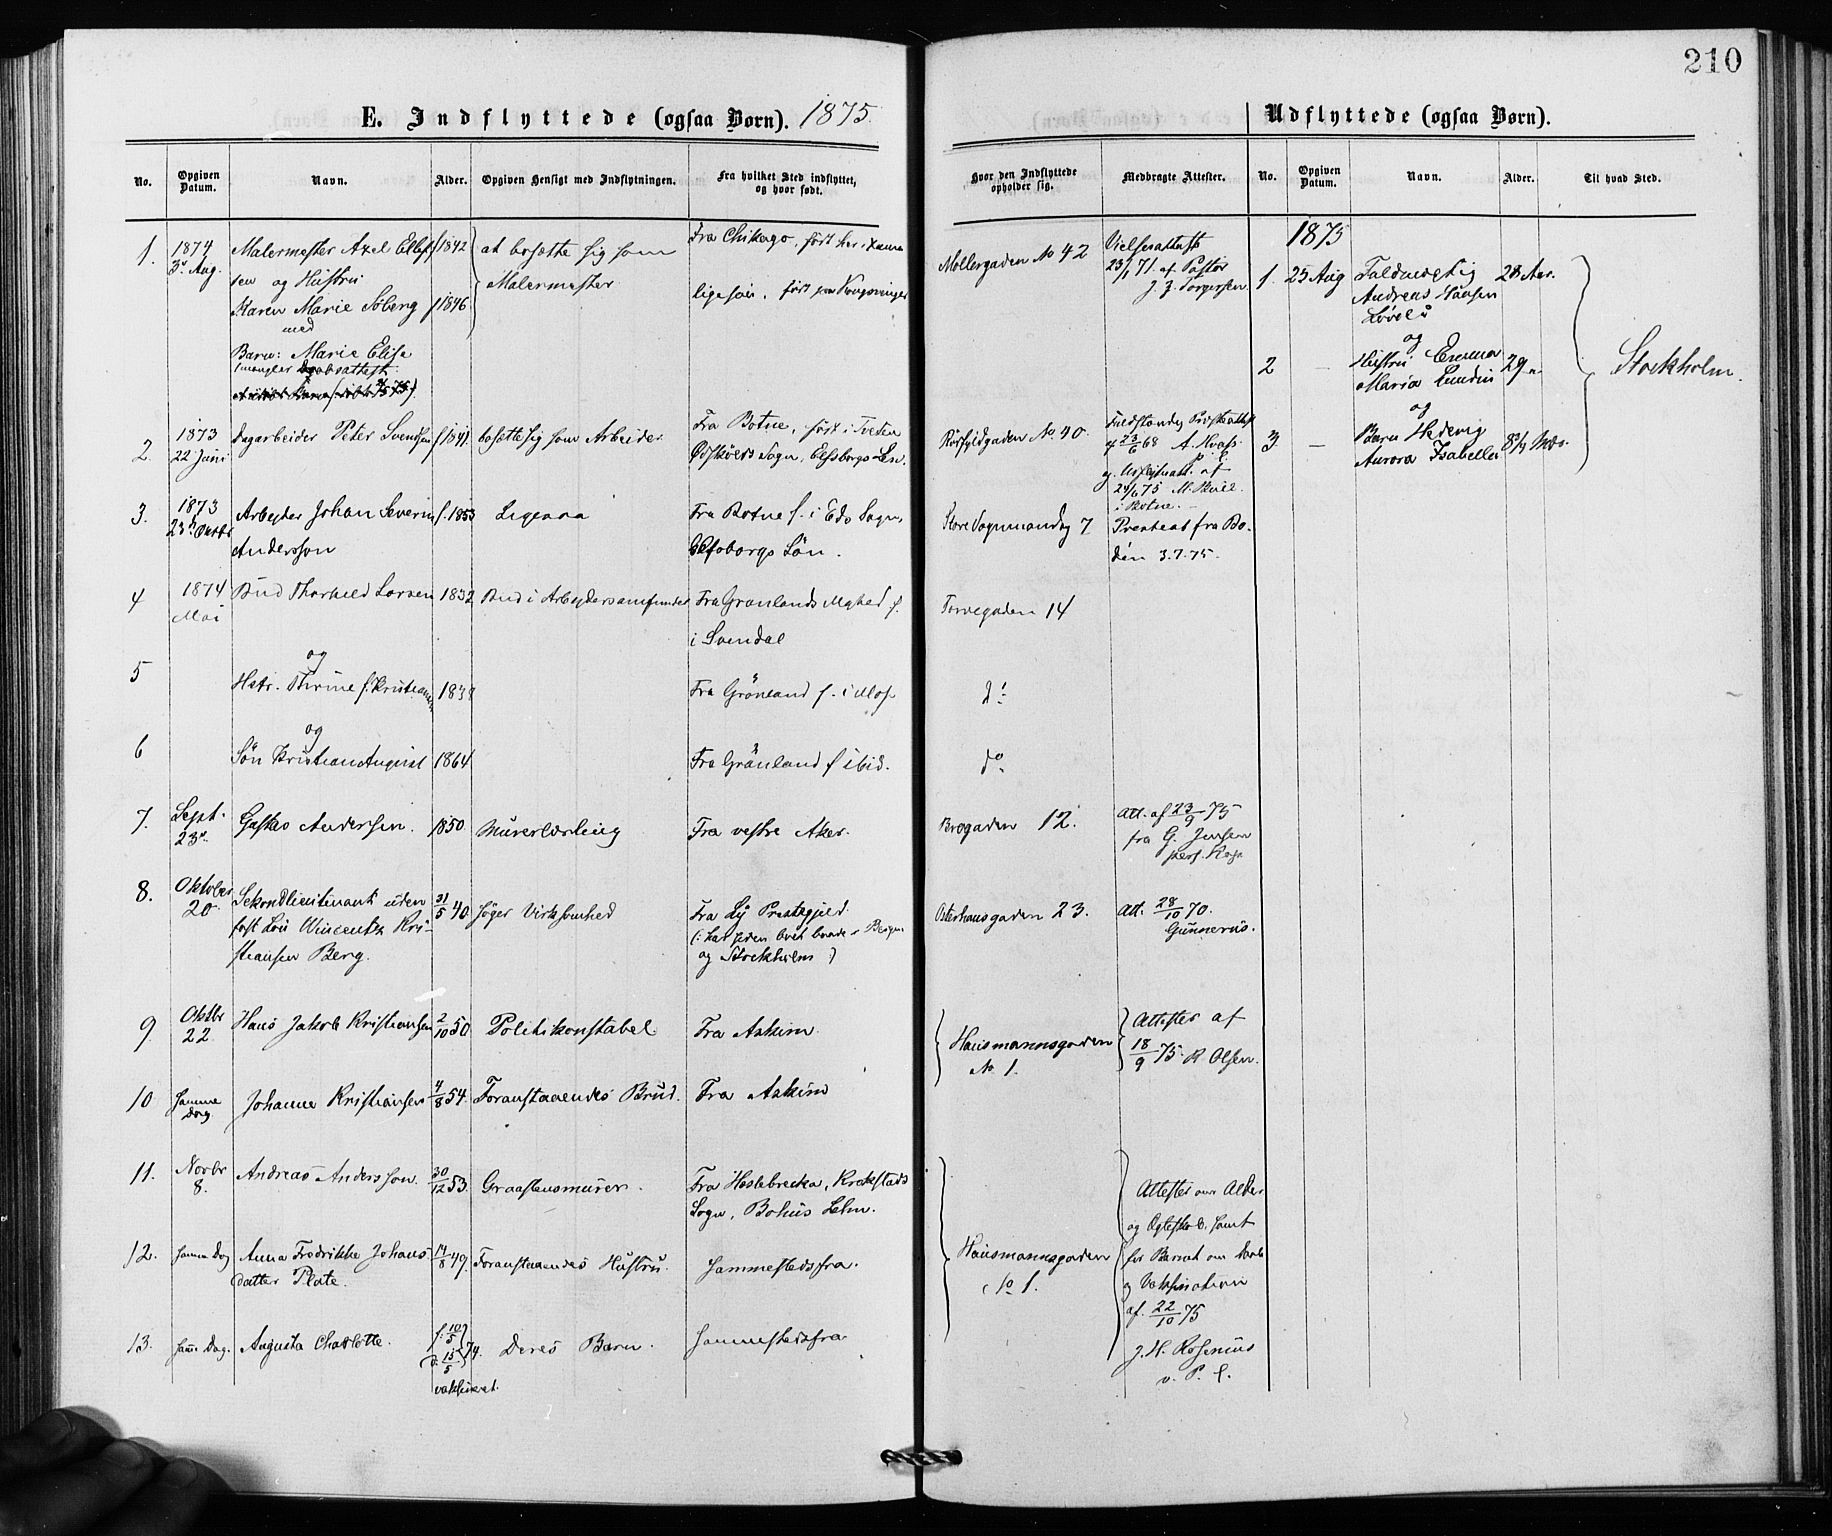 210
E. Indflyttede (ogsaa Børn). 1875.
No.
Opgiven Datum.
Navn.
Alder.
Opgiven Hensigt med Indflytningen.
Fra hvilket Sted indflyttet, og hvor født.
Hvor den Indflyttede opholder sig.
Medbragte Attester.
1. 1874 3die Aug.
Malermester Axel Ellef-
sen og Hustru
Karen Marie Søberg
med
Barn: Marie Elise
(mangler Daabsattest
f 1842
f 1846
at bosætte sig som
Malermester
Fra Chikago, født her i
ligesaa. født paa Kongsvinger
Møllergaden No 42
Vielsesattest
23/1 71 af Pastor
J. Z. Torgersen
2. 1873 22 Juni
Dagarbeider Peter Svendsen
f 1841.
bosætte sig som Arbeider
Fra Botne, født i Tveten
Ødskölds Sogn, Elfsborgs Len.
No 40.
23/6 68 A. Hvass
24/6 75
i Botne.
3. 1873 23de Oktbr
Arbeyder Johan Severin
Andersson
f. 1853
Ligesaa
Fra Botne f. i Eds Sogn,
Elfsborgs Län.
Store Vognmandsg 7
fra Bo-
den 3.7.75.
4 1874 Mai
Bud Thorkild Larsen
1832
Bud i Arbeydersamfundet
Fra Grønlands Myhed f.
i Svendal
Torvegaden 14
5
og
Hstr. Thrine f. Kristians
1838
Fra Grönland f. i Mos.
do
6
og
Sön Kristian August
1864
Fra Grönland f ibid.
do
7. Sept. 23de
Gustav Andersen.
1850
Murerlærling
Fra vestre Aker.
Brogaden 12.
Att. af 23/9 75
fra G. Jensen
pers. Kap.
8. Oktober 20.
Sekondlieutenant uden
fast Løn Wincents Kri-
stiansen Berg.
31/5 40.
søger Virksomhed
Fra Ly Prestegjeld.
(: har siden boet baade i Bergen
og Stockholm :)
Osterhausgaden 23.
Att. 28/10 70.
Gunnerus.
9. Oktbr 22
Hans Jakob Kristiansen
2/10 50
Politikonstabel
Fra Askim.
Hausmannsgaden
No. 1.
Attester af
18/9 75. R. Olsen.
10 Samme Dag
Johanne Kristiansen
4/8 54.
Foranstaaendes Brud.
Fra Askim
11. Novbr 8.
Andreas Andersson.
30/12 53.
Graastensmurer.
Fra Heslebrecka, Krokstads
Sogn, Bohus Lehn.
Hausmannsgaden
No 1.
Attester om Alder
og Ægteskab, samt
for Barnet om Daab
og Vaksination
af. 22/10 75
J. H. Rosenius
v. P. f.
12. Samme Dag
Anna Fredrikke Johans-
datter Plate.
14/8 49.
Foranstaaendes Hustru.
Sammestedsfra.
13. Samme Dag.
Augusta Charlotte.
f. 10/5
d. 15/5 } 74.
vaksineret.
Deres Barn.
Sammestedsfra
Udflyttede (ogsaa Børn).
No.
Opgiven Datum.
Navn.
Alder.
Til hvad Sted.
1875
1. 25 Aug
Fuldmægtig
Andreas Hansen
Løvold
28 Aar.
og
2 —
Hustru Emma
Maria Lundin
29 "
og
3 —
Barn Hedevig
Aurora Isabella
8 3/4 Mdr.
Stockholm.